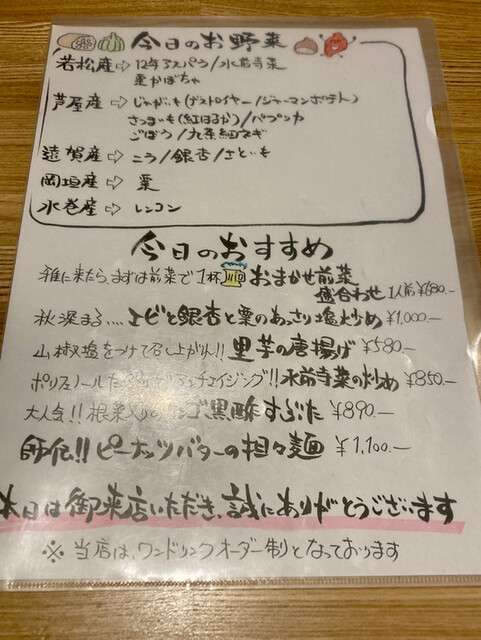 今日のお野菜
若松産⇨ 12年アスパラ/水前寺菜
栗かぼちゃ
芦屋産⇨ じゃがいも(デストロイヤー/ジャーマンポテト)
さつまいも(紅はるか)/パプリカ
ごぼう/九条細ネギ
遠賀産⇨ にら/銀杏/さといも
岡垣産⇨ 栗
水巻産⇨ レンコン
今日のおすすめ
雅に来たら、まずは前菜で1杯 おまかせ前菜
盛合わせ 1人前¥680.-
秋深まる.... エビと銀杏と栗のあっさり塩炒め ¥1,000.-
山椒塩をつけて召し上がれ!! 里芋の唐揚げ ¥580.-
ポリフェノール チェイジング!! 水前寺菜の炒め ¥850.-
大人気!! 根菜入り 黒酢すぶた ¥890.-
師伝!! ピーナッツバターの担々麺 ¥1,100.-
本日は御来店いただき、誠にありがとうございます
※ 当店は、ワンドリンクオーダー制となっております